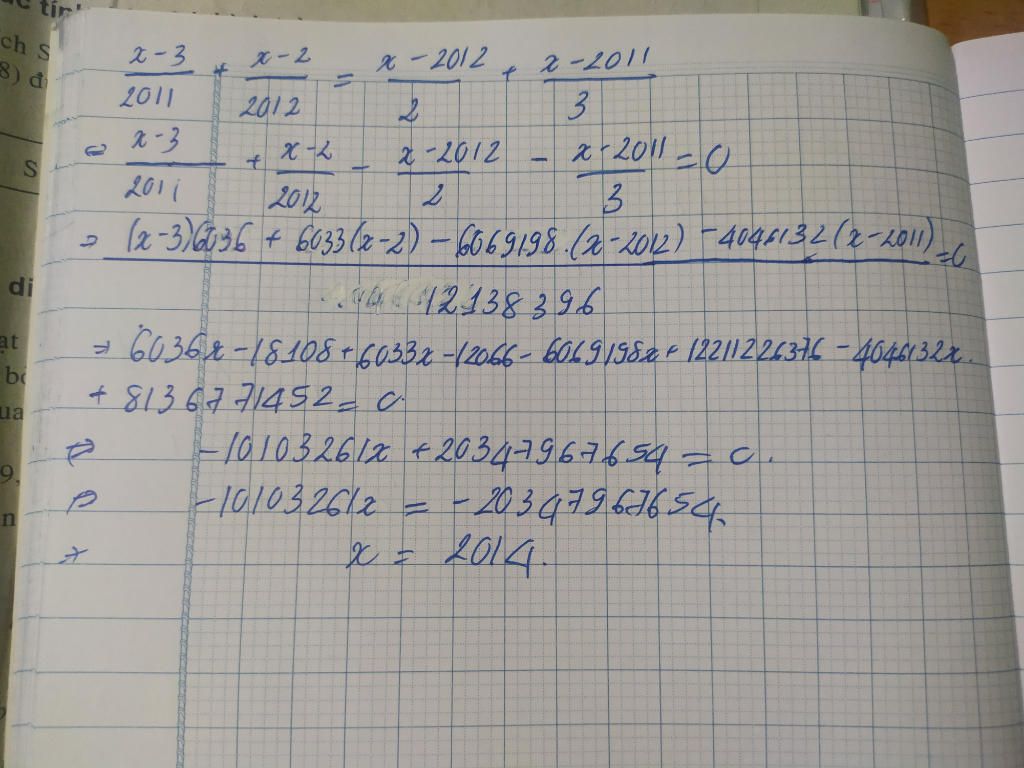 x-3/2011 + x-2/2012 = x-2012/2 + x-2011/3
⇔ x-3/2011 + x-2/2012 - x-2012/2 - x-2011/3 = 0
⇒ (x-3)6036 + 6033(x-2) - 6069198.(x-2012) - 4046132(x-2011)/12138396 = 0
⇒ 6036x - 18108 + 6033x - 12066 - 6069198x + 12211226376 - 4046132x.
+ 8136771452 = 0.
⇔ -10103261x + 20347967654 = 0.
⇔ -10103261x = -20347967654.
x = 2014.